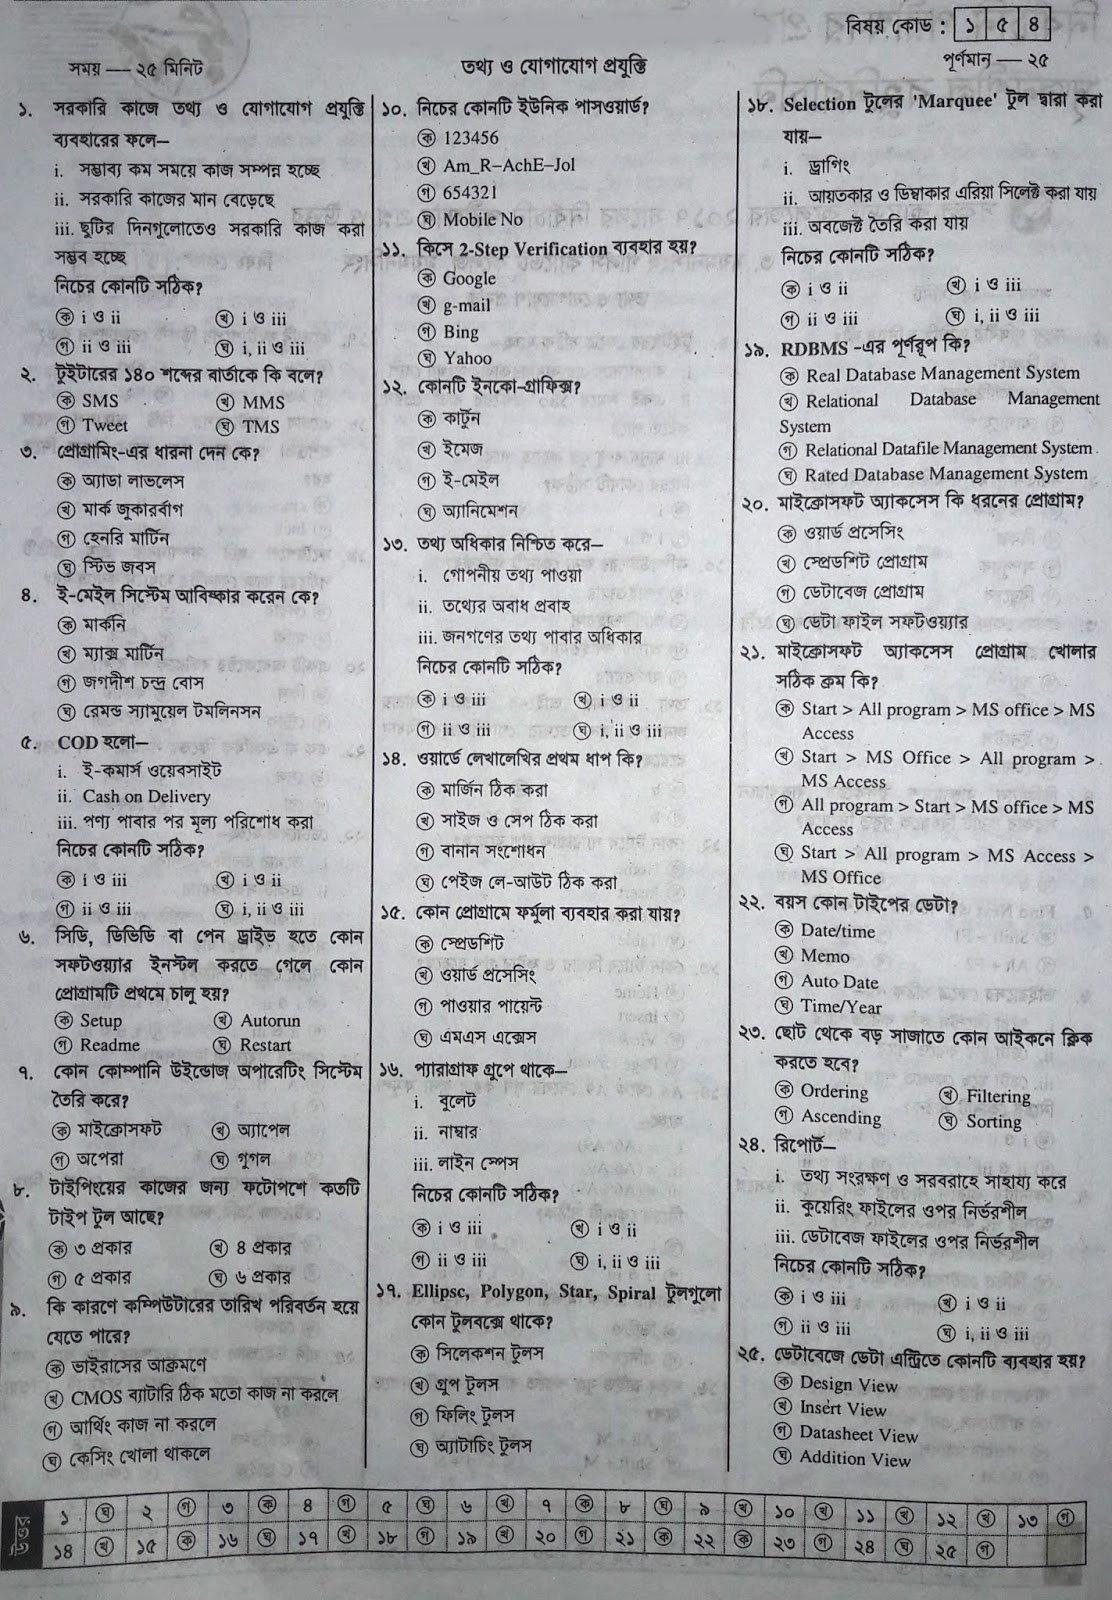 বিষয় কোড : ১ ৫ ৪
সময় — ২৫ মিনিট
তথ্য ও যোগাযোগ প্রযুক্তি
পূর্ণমান — ২৫
১. সরকারি কাজে তথ্য ও যোগাযোগ প্রযুক্তি
ব্যবহারের ফলে—
i. সম্ভাব্য কম সময়ে কাজ সম্পন্ন হচ্ছে
ii. সরকারি কাজের মান বেড়েছে
iii. ছুটির দিনগুলোতেও সরকারি কাজ করা
সম্ভব হচ্ছে
নিচের কোনটি সঠিক?
ক i ও ii খ i ও iii
গ ii ও iii ঘ i, ii ও iii
২. টুইটারের ১৪০ শব্দের বার্তাকে কি বলে?
ক SMS খ MMS
গ Tweet ঘ TMS
৩. প্রোগ্রামিং-এর ধারনা দেন কে?
ক অ্যাডা লাভলেস
খ মার্ক জুকারবার্গ
গ হেনরি মার্টিন
ঘ স্টিভ জবস
৪. ই-মেইল সিস্টেম আবিষ্কার করেন কে?
ক মার্কনি
খ ম্যাক্স মার্টিন
গ জগদীশ চন্দ্র বোস
ঘ রেমন্ড স্যামুয়েল টমলিনসন
৫. COD হলো—
i. ই-কমার্স ওয়েবসাইট
ii. Cash on Delivery
iii. পণ্য পাবার পর মূল্য পরিশোধ করা
নিচের কোনটি সঠিক?
ক i ও iii খ i ও ii
গ ii ও iii ঘ i, ii ও iii
৬. সিডি, ডিভিডি বা পেন ড্রাইভ হতে কোন
সফটওয়্যার ইনস্টল করতে গেলে কোন
প্রোগ্রামটি প্রথমে চালু হয়?
ক Setup খ Autorun
গ Readme ঘ Restart
৭. কোন কোম্পানি উইন্ডোজ অপারেটিং সিস্টেম
তৈরি করে?
ক মাইক্রোসফট খ অ্যাপেল
গ অপেরা ঘ গুগল
৮. টাইপিংয়ের কাজের জন্য ফটোপশে কতটি
টাইপ টুল আছে?
ক ৩ প্রকার খ ৪ প্রকার
গ ৫ প্রকার ঘ ৬ প্রকার
৯. কি কারণে কম্পিউটারের তারিখ পরিবর্তন হয়ে
যেতে পারে?
ক ভাইরাসের আক্রমণে
খ CMOS ব্যাটারি ঠিক মতো কাজ না করলে
গ আর্থিং কাজ না করলে
ঘ কেসিং খোলা থাকলে
১০. নিচের কোনটি ইউনিক পাসওয়ার্ড?
ক 123456
খ Am_R–AchE–Jol
গ 654321
ঘ Mobile No
১১. কিসে 2-Step Verification ব্যবহার হয়?
ক Google
খ g-mail
গ Bing
ঘ Yahoo
১২. কোনটি ইনকো-গ্রাফিক্স?
ক কার্টুন
খ ইমেজ
গ ই-মেইল
ঘ অ্যানিমেশন
১৩. তথ্য অধিকার নিশ্চিত করে—
i. গোপনীয় তথ্য পাওয়া
ii. তথ্যের অবাধ প্রবাহ
iii. জনগণের তথ্য পাবার অধিকার
নিচের কোনটি সঠিক?
ক i ও iii খ i ও ii
গ ii ও iii ঘ i, ii ও iii
১৪. ওয়ার্ডে লেখালেখির প্রথম ধাপ কি?
ক মার্জিন ঠিক করা
খ সাইজ ও সেপ ঠিক করা
গ বানান সংশোধন
ঘ পেইজ লে-আউট ঠিক করা
১৫. কোন প্রোগ্রামে ফর্মুলা ব্যবহার করা যায়?
ক স্প্রেডশিট
খ ওয়ার্ড প্রসেসিং
গ পাওয়ার পয়েন্ট
ঘ এমএস এক্সেস
১৬. প্যারাগ্রাফ গ্রুপে থাকে—
i. বুলেট
ii. নাম্বার
iii. লাইন স্পেস
নিচের কোনটি সঠিক?
ক i ও iii খ i ও ii
গ ii ও iii ঘ i, ii ও iii
১৭. Ellipsc, Polygon, Star, Spiral টুলগুলো
কোন টুলবক্সে থাকে?
ক সিলেকশন টুলস
খ গ্রুপ টুলস
গ ফিলিং টুলস
ঘ অ্যাটাচিং টুলস
১৮. Selection টুলের 'Marquee' টুল দ্বারা করা
যায়—
i. ড্রাগিং
ii. আয়তকার ও ডিম্বাকার এরিয়া সিলেক্ট করা যায়
iii. অবজেক্ট তৈরি করা যায়
নিচের কোনটি সঠিক?
ক i ও ii খ i ও iii
গ ii ও iii ঘ i, ii ও iii
১৯. RDBMS -এর পূর্ণরূপ কি?
ক Real Database Management System
খ Relational Database Management
System
গ Relational Datafile Management System
ঘ Rated Database Management System
২০. মাইক্রোসফট অ্যাকসেস কি ধরনের প্রোগ্রাম?
ক ওয়ার্ড প্রসেসিং
খ স্প্রেডশিট প্রোগ্রাম
গ ডেটাবেজ প্রোগ্রাম
ঘ ডেটা ফাইল সফটওয়্যার
২১. মাইক্রোসফট অ্যাকসেস প্রোগ্রাম খোলার
সঠিক ক্রম কি?
ক Start > All program > MS office > MS
Access
খ Start > MS Office > All program >
MS Access
গ All program > Start > MS office > MS
Access
ঘ Start > All program > MS Access >
MS Office
২২. বয়স কোন টাইপের ডেটা?
ক Date/time
খ Memo
গ Auto Date
ঘ Time/Year
২৩. ছোট থেকে বড় সাজাতে কোন আইকনে ক্লিক
করতে হবে?
ক Ordering খ Filtering
গ Ascending ঘ Sorting
২৪. রিপোর্ট—
i. তথ্য সংরক্ষণ ও সরবরাহে সাহায্য করে
ii. কুয়েরিং ফাইলের ওপর নির্ভরশীল
iii. ডেটাবেজ ফাইলের ওপর নির্ভরশীল
নিচের কোনটি সঠিক?
ক i ও iii খ i ও ii
গ ii ও iii ঘ i, ii ও iii
২৫. ডেটাবেজে ডেটা এন্ট্রিতে কোনটি ব্যবহার হয়?
ক Design View
খ Insert View
গ Datasheet View
ঘ Addition View
উত্তর
১ ঘ ২ গ ৩ ক ৪ গ ৫ ঘ ৬ খ ৭ ক ৮ ঘ ৯ খ ১০ খ ১১ খ ১২ খ ১৩ গ
১৪ খ ১৫ ক ১৬ ঘ ১৭ খ ১৮ গ ১৯ খ ২০ গ ২১ ক ২২ ক ২৩ গ ২৪ ঘ ২৫ গ